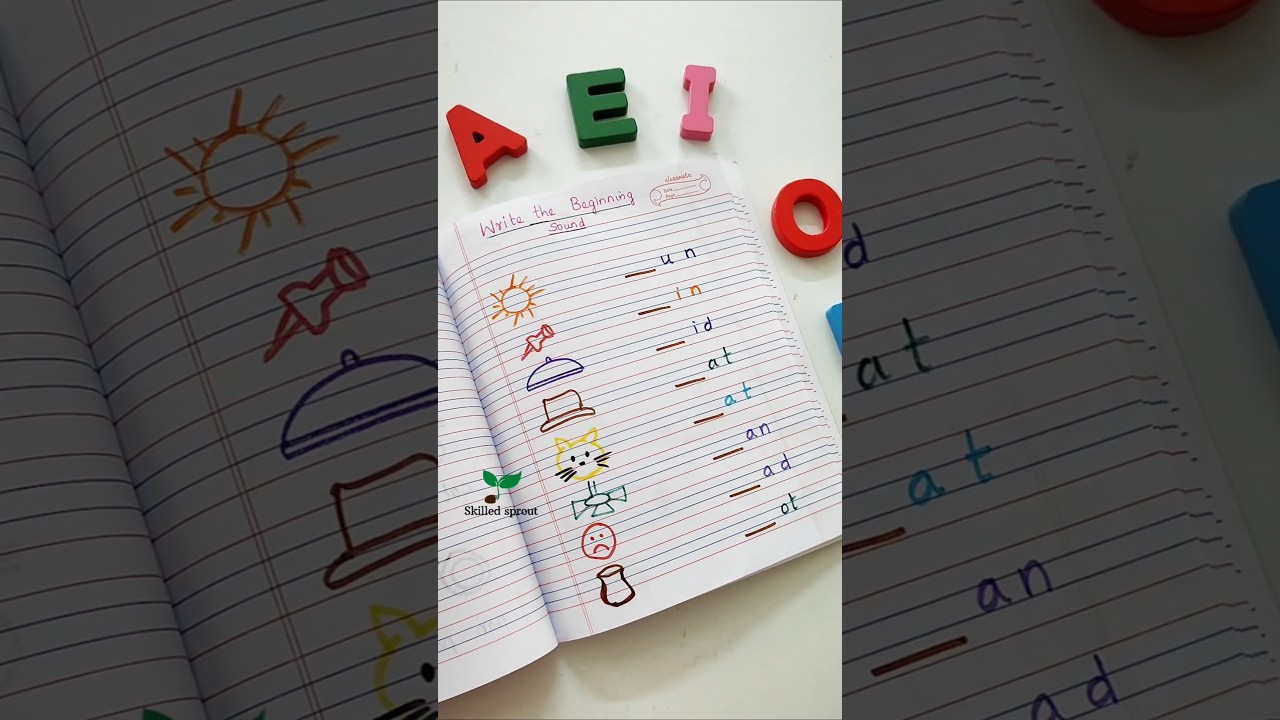 A E I
O
Write the Beginning
Sound
classmate
Date
Page
_un
_in
_id
_at
_at
_an
_ad
_ot
Skilled sprout